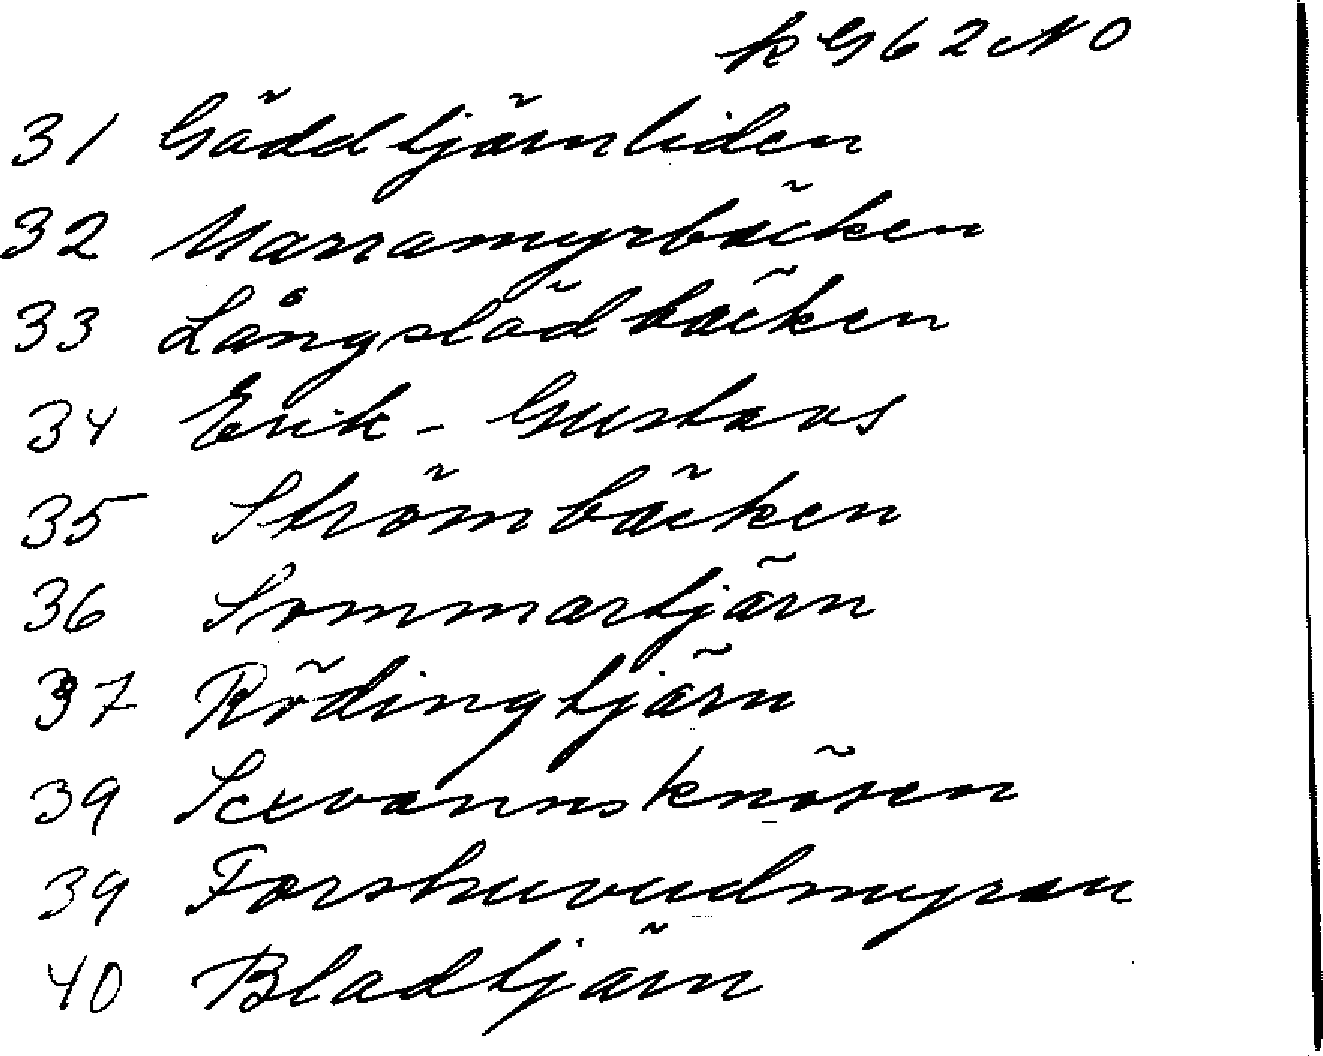 k G 62 NO
31 Gäddtjärnliden
32 Marramyrbäcken
33 Långslädbäcken
34 Erik-Gustavs
35 Strömbäcken
36 Sommartjärn
37 Rödingtjärn
39
39 Forshuvudmyran
40 Bladtjärn